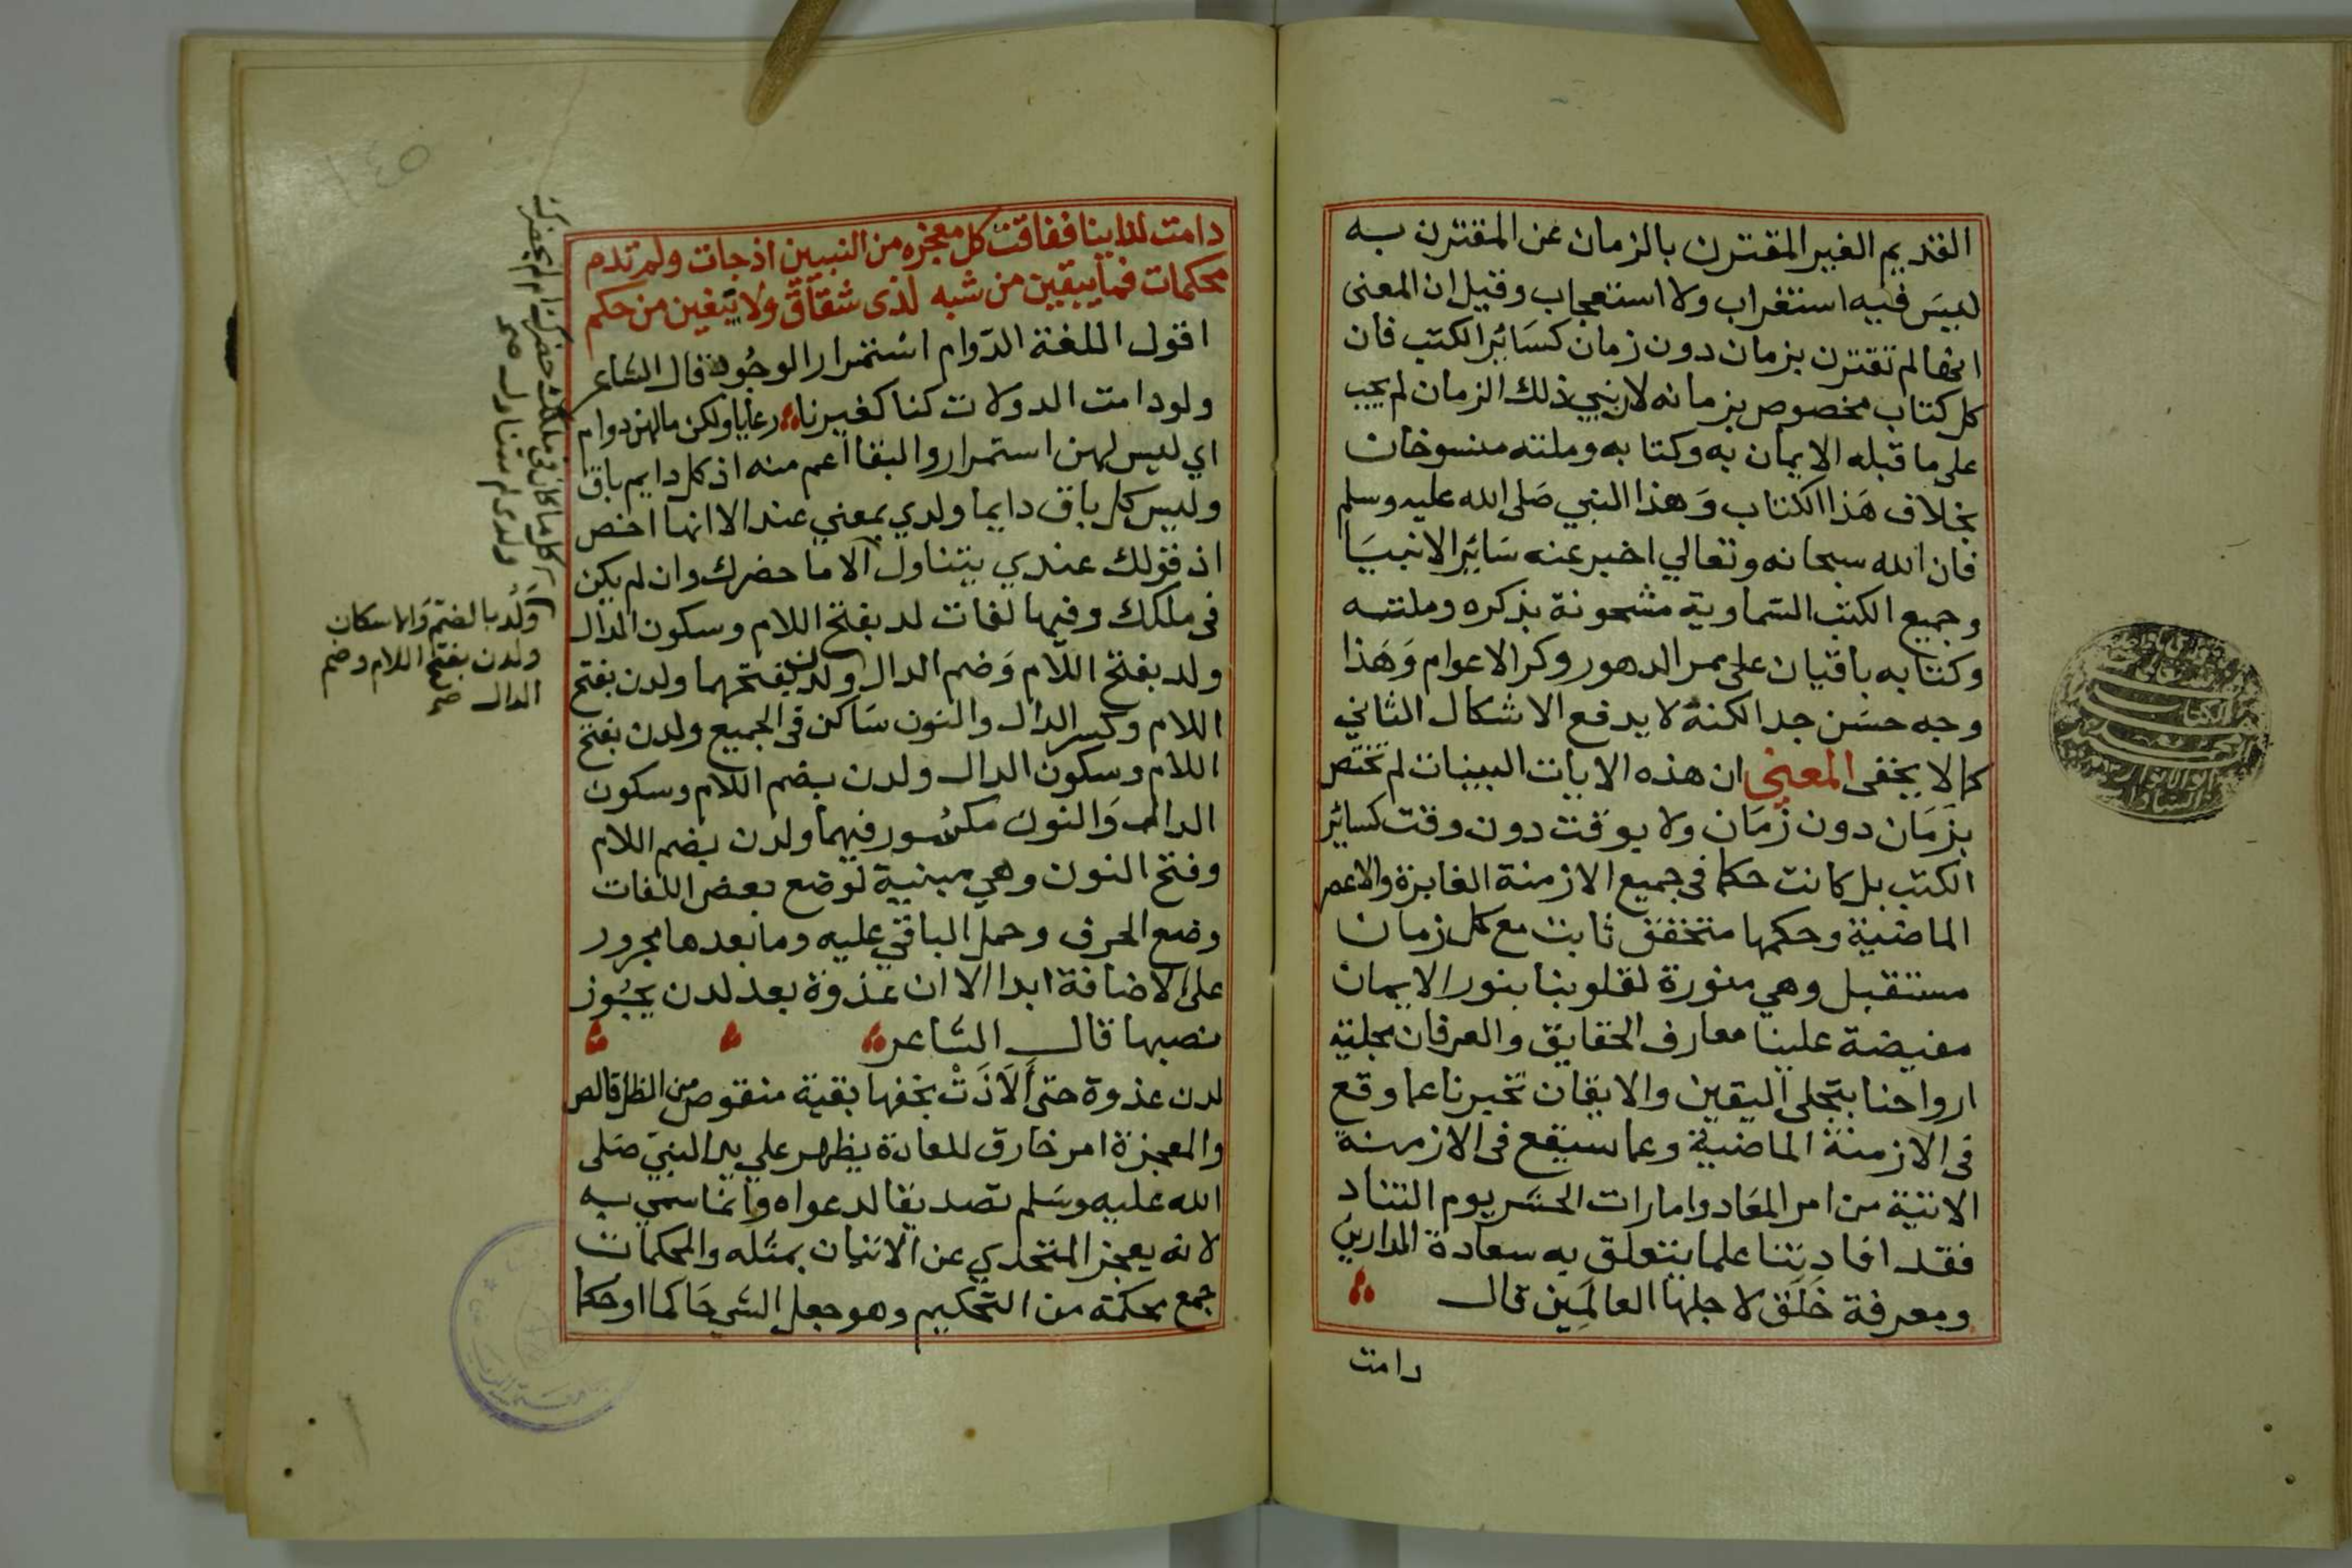 القديم الغير المقترن بالزمان عن المقترن به
ليس فيه استغراب ولا استعجاب وقيل ان المعنى
انها لم تقترن بزمان دون زمان كسائر الكتب فان
كل كتاب مخصوص بزمانه لان نبي ذلك الزمان لم يجب
على ما قبله الايمان به وكتابه وملته منسوخات
بخلاف هذا الكتاب وهذا النبي صلى الله عليه وسلم
فان الله سبحانه وتعالي اخبر عنه سائر الانبيا
وجميع الكتب السماوية مشحونة بذكره وملته
وكتابه باقيان على ممر الدهور وكر الاعوام وهذا
وجه حسن جدا لكنه لا يدفع الاشكال الثاني
كما لا يخفى المعنى ان هذه الايات البينات لم تختص
بزمان دون زمان ولا بوقت دون وقت كسائر
الكتب بل كانت حكما في جميع الازمنة الغابرة والاعصر
الماضية وحكمها متحقق ثابت مع كل زمان
مستقبل وهي منورة لقلوبنا بنور الايمان
مفيضة علينا معارف الحقايق والعرفان مجلية
ارواحنا بتجلي اليقين والايقان تخبرنا عما وقع
في الازمنة الماضية وعما سيقع في الازمنة
الاتية من امر المعاد وامارات الحشر يوم التناد
فقد افادتنا علما يتعلق به سعادة الدارين
ومعرفة خلق لاجلها العالمين قال
دامت
دامت لدينا ففاقت كل معجزه من النبيين اذ جات ولم تدم
محكمات فما يبقين من شبه لذى شقاق ولا يبغين من حكم
اقول اللغة الدوام استمرار الوجود قال الشاعر
ولو دامت الدولات كنا كغيرنا رعايا ولكن ما لهن دوام
اي ليس لهن استمرار والبقا اعم منه اذ كل دايم باق
وليس كل باق دايما ولدي بمعني عند الا انها اخص
اذ قولك عندي يتناول الا ما حضرك وان لم يكن
في ملكك وفيها لغات لد بفتح اللام وسكون الدال
ولد بفتح اللام وضم الدال ولدن بفتحهما ولدن بفتح
اللام وكسر الدال والنون ساكن في الجميع ولدن بفتح
اللام وسكون الدال ولدن بضم اللام وسكون
الدال والنون مكسور فيهما ولدن بضم اللام
وفتح النون وهي مبنية لوضع بعض اللغات
وضع الحرف وحمل الباقي عليه وما بعدها مجرور
على الاضافة ابدا الا ان غذوة بعد لدن يجوز
نصبها قال الشاعر
لدن غذوة حتى ألاذت بخفها بقية منقوص من الظل قالص
والمعجزة امر خارق للعادة يظهر علي يد النبي صلى
الله عليه وسلم تصديقا لدعواه وانما سمي به
لانه يعجز المتحدي عن الاتيان بمثله والمحكمات
جمع محكمة من التحكيم وهو جعل الشي حاكما او حكما
ولد بالضم والاسكان
ولدن بفتح اللام وضم
الدال صح
١٤٥